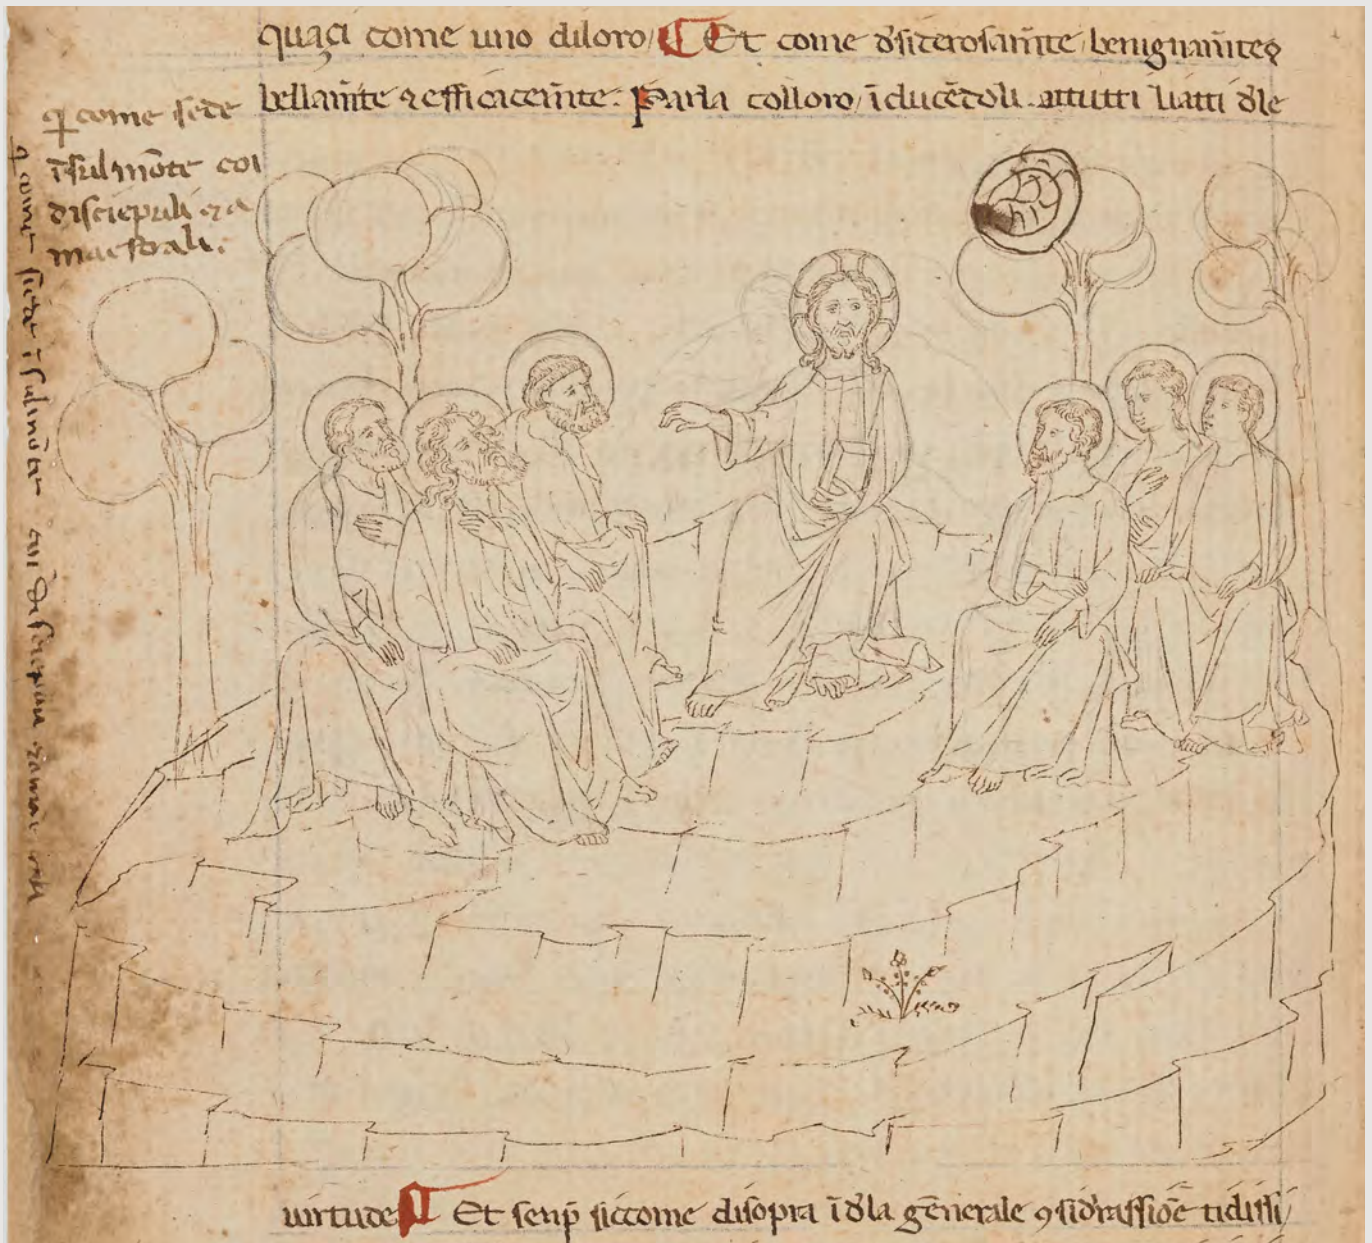 quaçi come uno diloro / Et come dsiderosam̄te / benignam̄te
bellam̄te ⁊ efficacem̄te . Parla colloro / īducēdoli attutti liatti dle
q̄ come sede
īsulmōte coi
disciepuli ⁊ a
maestrali .
q̄ come siede ī sulmōte coi disciepuli
uirtude Et senp̄ siccome disopra ī dla gēnerale ꝯsidrassiōe tidissi /